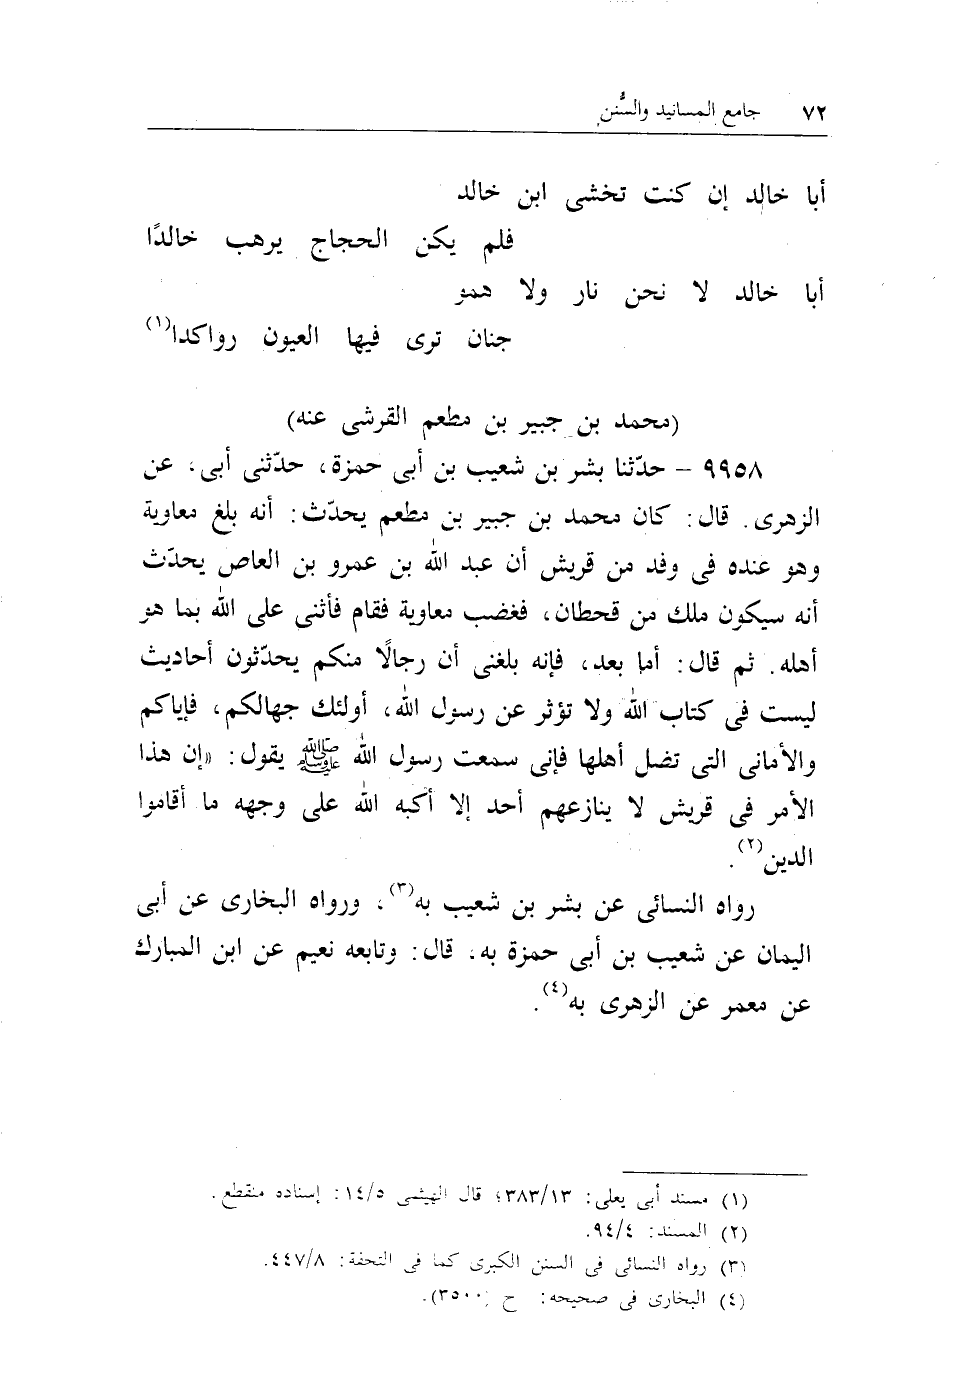 ٧٢ جامع المسانيد والسُّنن
أبا خالد إن كنت تخشى ابن خالد
فلم يكن الحجاج يرهب خالدًا
أبا خالد لا نحن نار ولا همو
جنان ترى فيها العيون رواكدا(١)
(محمد بن جبير بن مطعم القرشى عنه)
٩٩٥٨ - حدّثنا بشر بن شعيب بن أبى حمزة، حدّثنى أبى، عن
الزهرى. قال: كان محمد بن جبير بن مطعم يحدّث: أنه بلغ معاوية
وهو عنده فى وفد من قريش أن عبد الله بن عمرو بن العاص يحدّث
أنه سيكون ملك من قحطان، فغضب معاوية فقام فأثنى على الله بما هو
أهله. ثم قال: أما بعد، فإنه بلغنى أن رجالًا منكم يحدّثون أحاديث
ليست فى كتاب الله ولا تؤثر عن رسول الله، أولئك جهالكم، فإياكم
والأمانى التى تضل أهلها فإنى سمعت رسول الله ﷺ يقول: «إن هذا
الأمر فى قريش لا ينازعهم أحد إلا أكبه الله على وجهه ما أقاموا
الدين(٢).
رواه النسائى عن بشر بن شعيب به(٣)، ورواه البخارى عن أبى
اليمان عن شعيب بن أبى حمزة به، قال: وتابعه نعيم عن ابن المبارك
عن معمر عن الزهرى به(٤).
(١) مسند أبى يعلى: ٣٨٣/١٣؛ قال الهيثمى ١٤/٥: إسناده منقطع.
(٢) المسند: ٩٤/٤.
(٣) رواه النسائى فى السنن الكبرى كما فى التحفة: ٤٤٧/٨.
(٤) البخارى فى صحيحه: ح (٣٥٠٠).